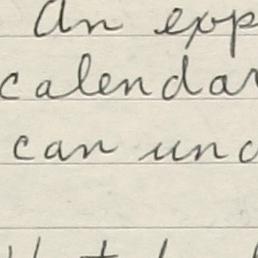 An exp
calendar
can und